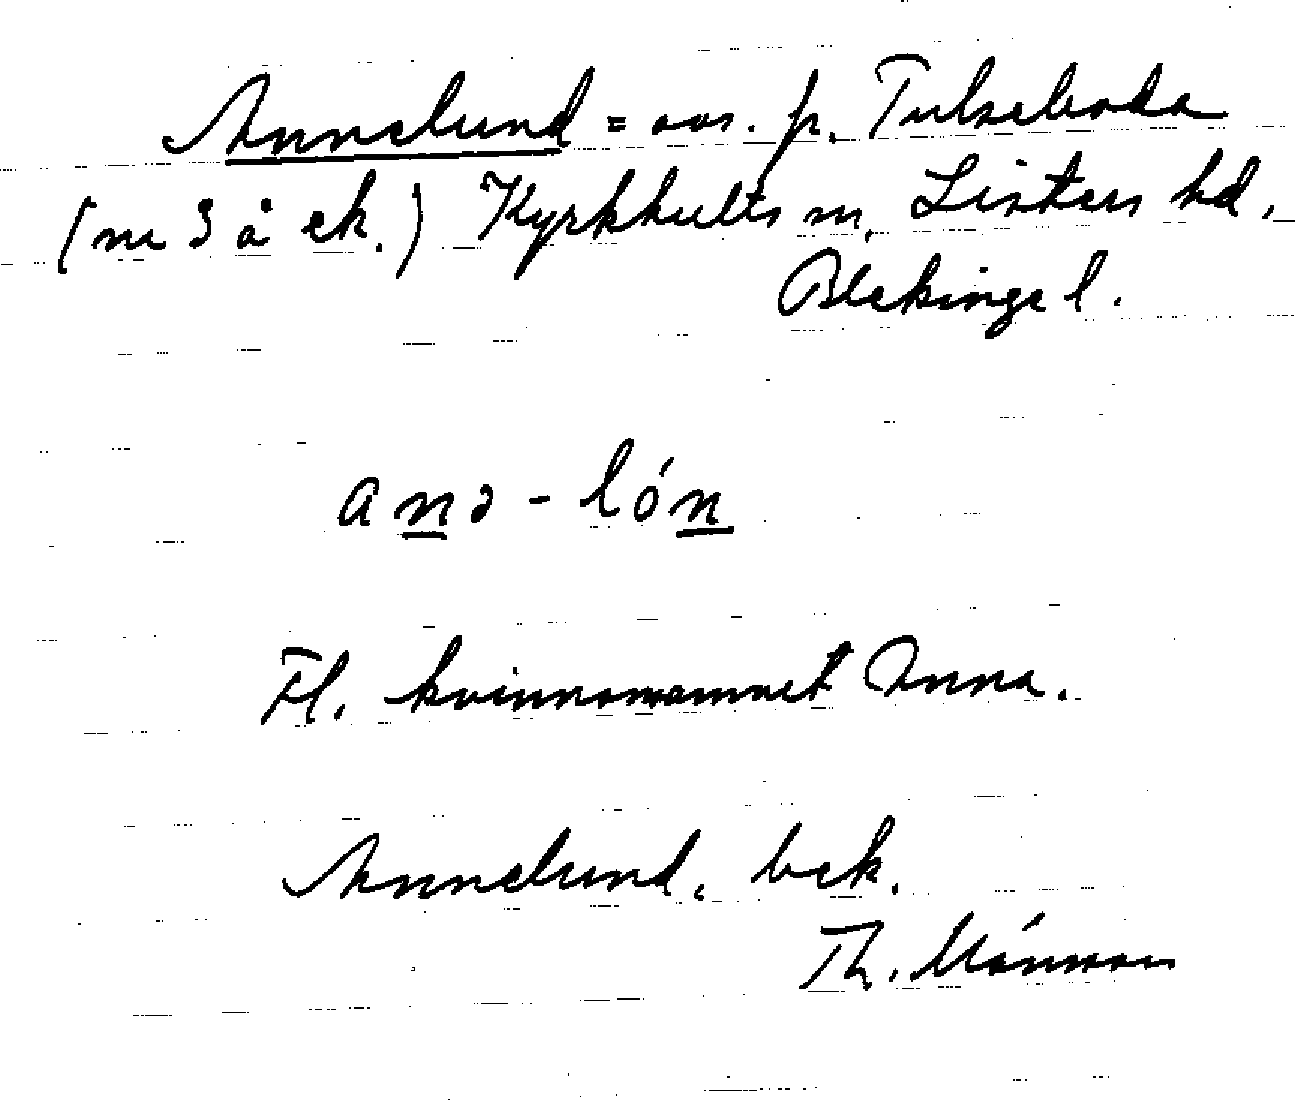 Annelund = avs. p. Tulseboda
(nr 3 å ek.) Kyrkhults sn, Listers hd,
Blekinge l.
anə - lón
Fl. kvinnonamnet Anna.
Annelund, bek.
Th.